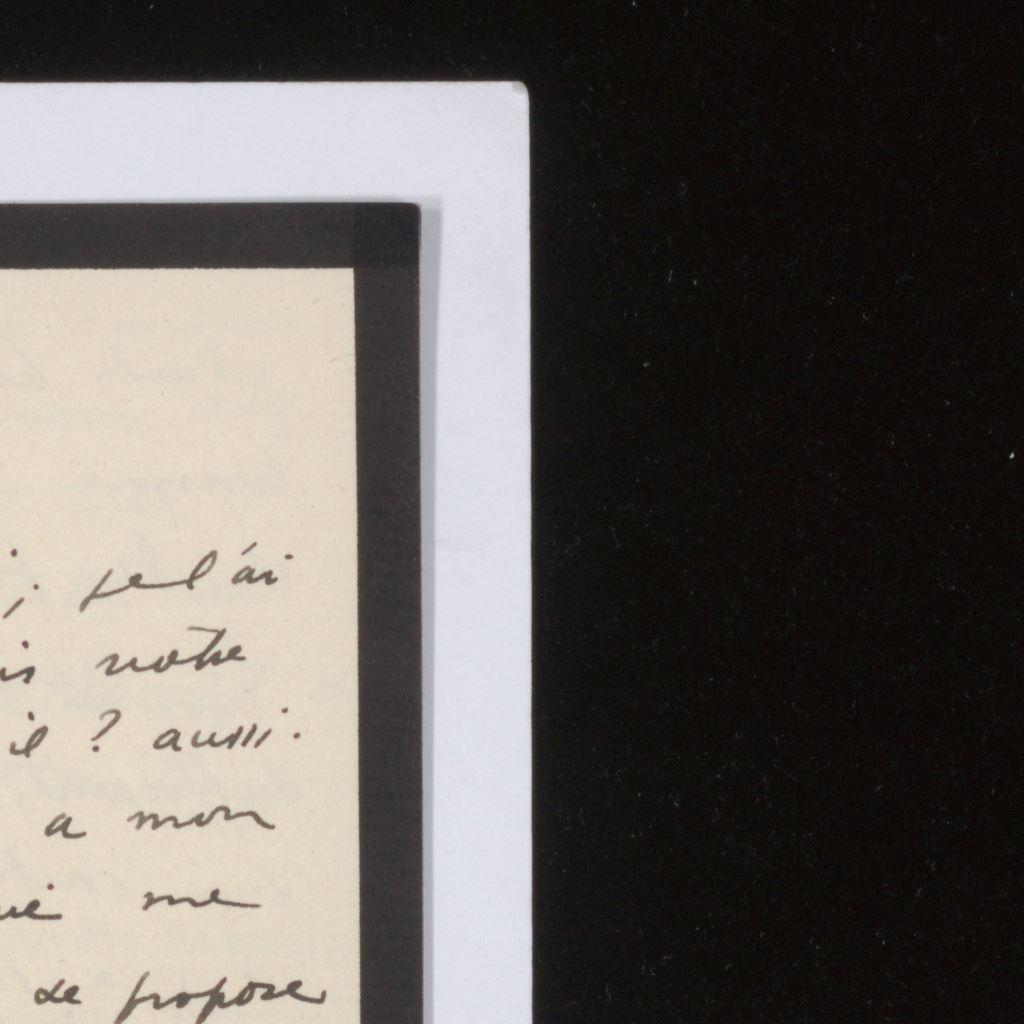 ; je l'ai
notre
il ? aussi.
a mon
me
se propose